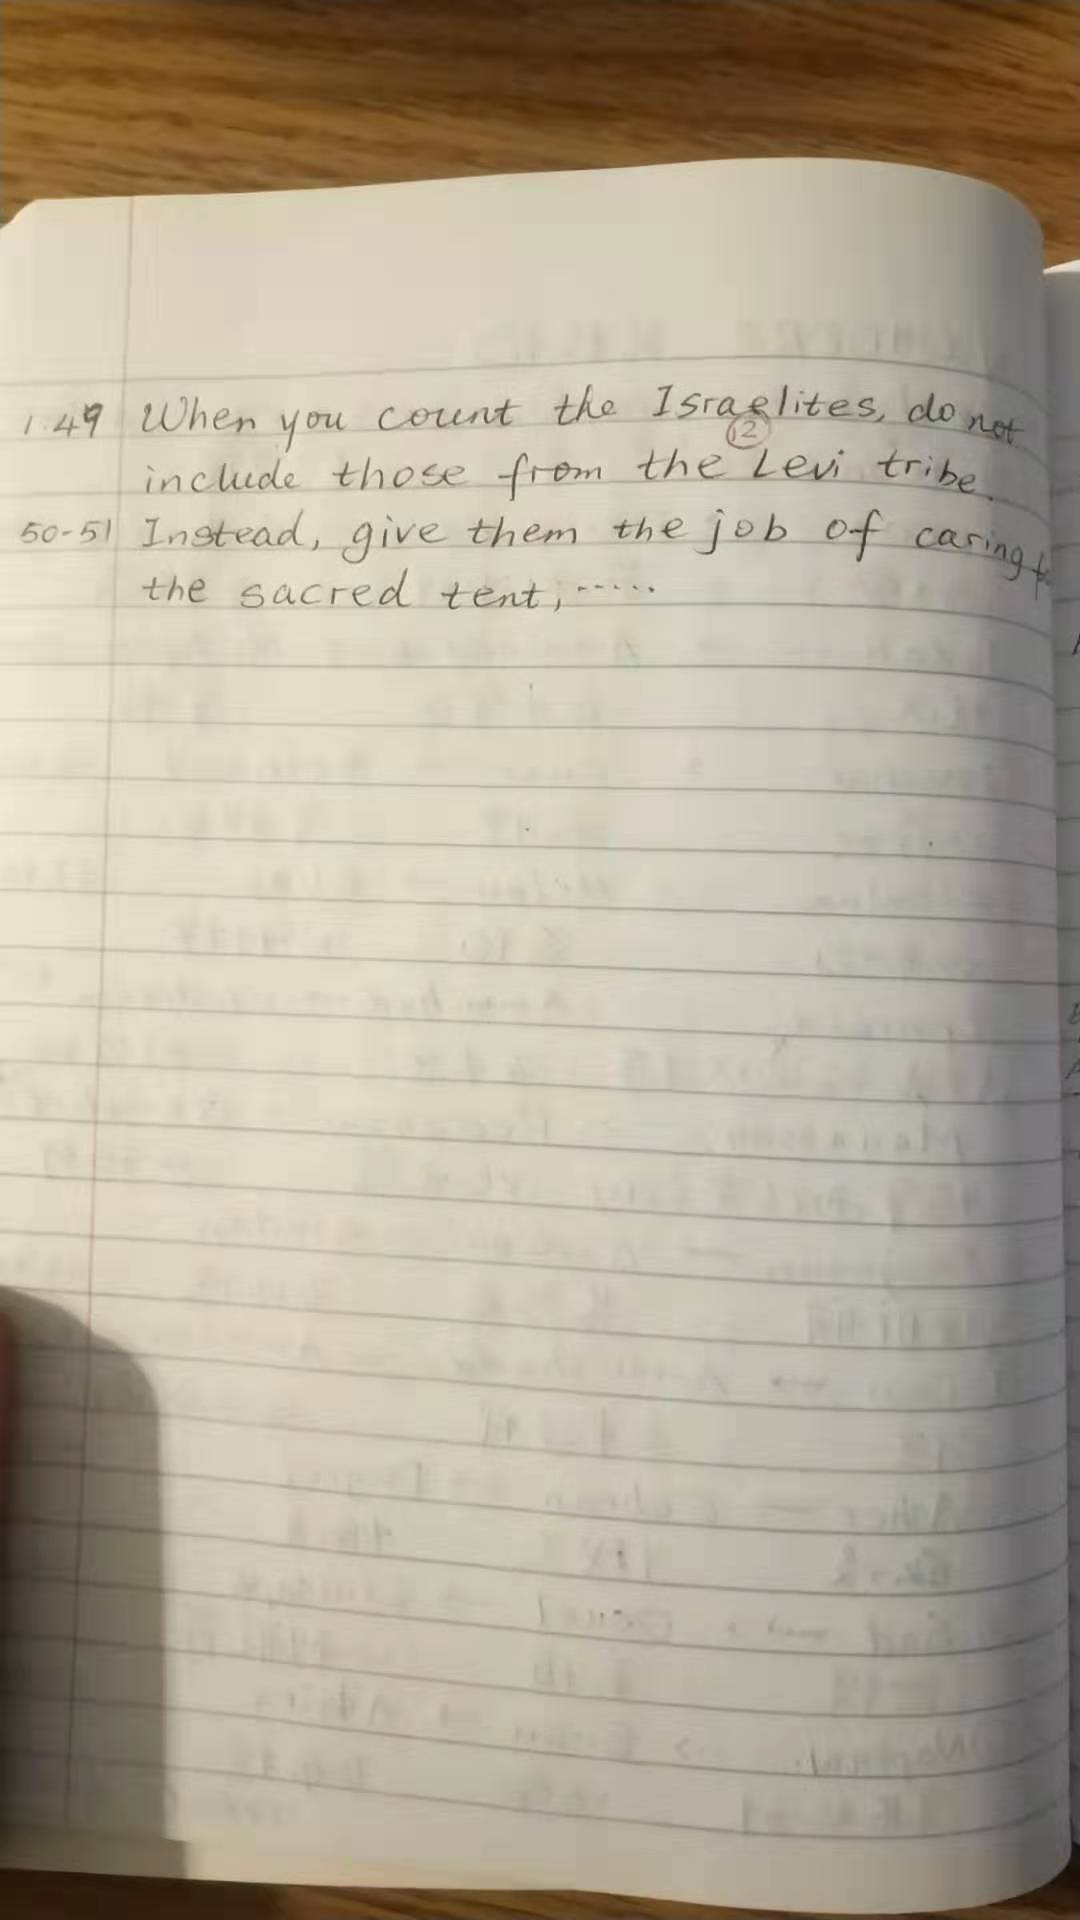 1.49 When you count the Israelites, do not
②
include those from the Levi tribe.
50-51 Instead, give them the job of caring
the sacred tent, ......